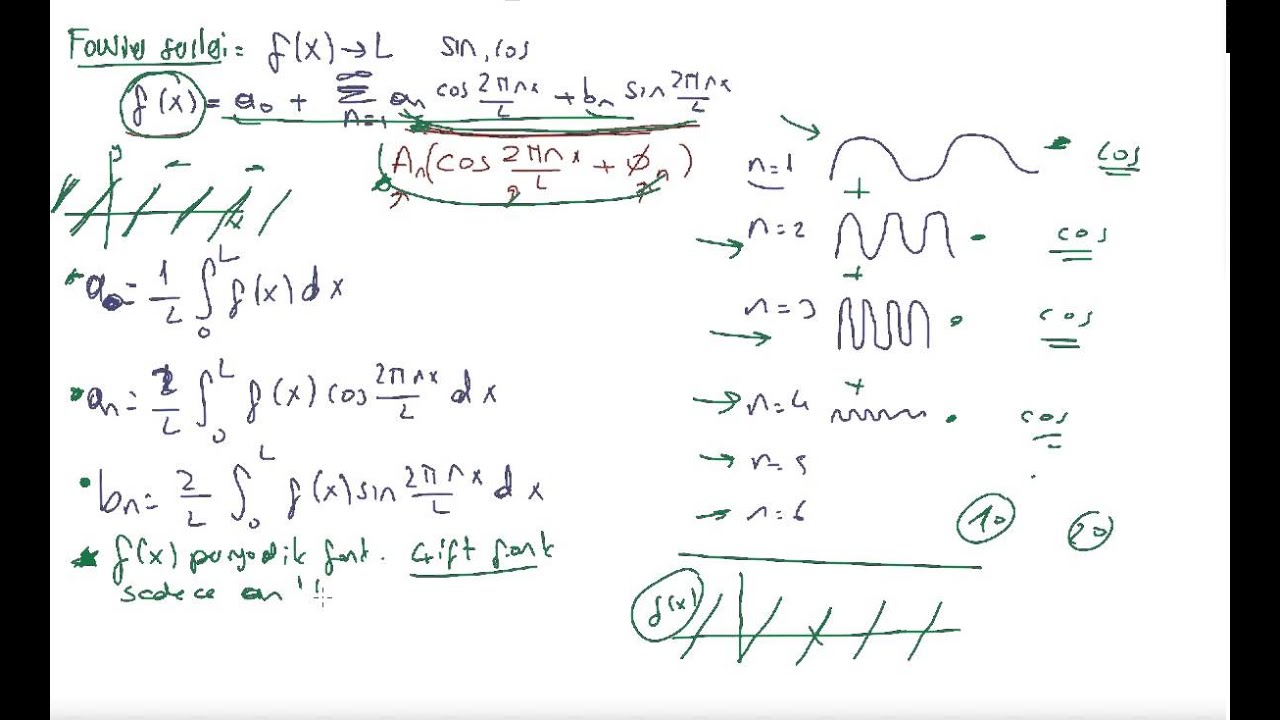 Fourier serileri: f(x) → L sin, cos
f(x) = a₀ + ∞ Σ n=1 aₙ cos 2πnx/L + bₙ sin 2πnx/L
(Aₙ(cos 2πnx/L + φₙ)
y
a₀ = 1/L ∫₀ᴸ f(x) dx
aₙ = 2/L ∫₀ᴸ f(x) cos 2πnx/L dx
bₙ = 2/L ∫₀ᴸ f(x) sin 2πnx/L dx
f(x) periyodik fonk. çift fonk
sadece an'ı
n=1 cos
+
n=2 cos
+
n=3 cos
+
n=4 cos
n=5
n=6
10 20
f(x)